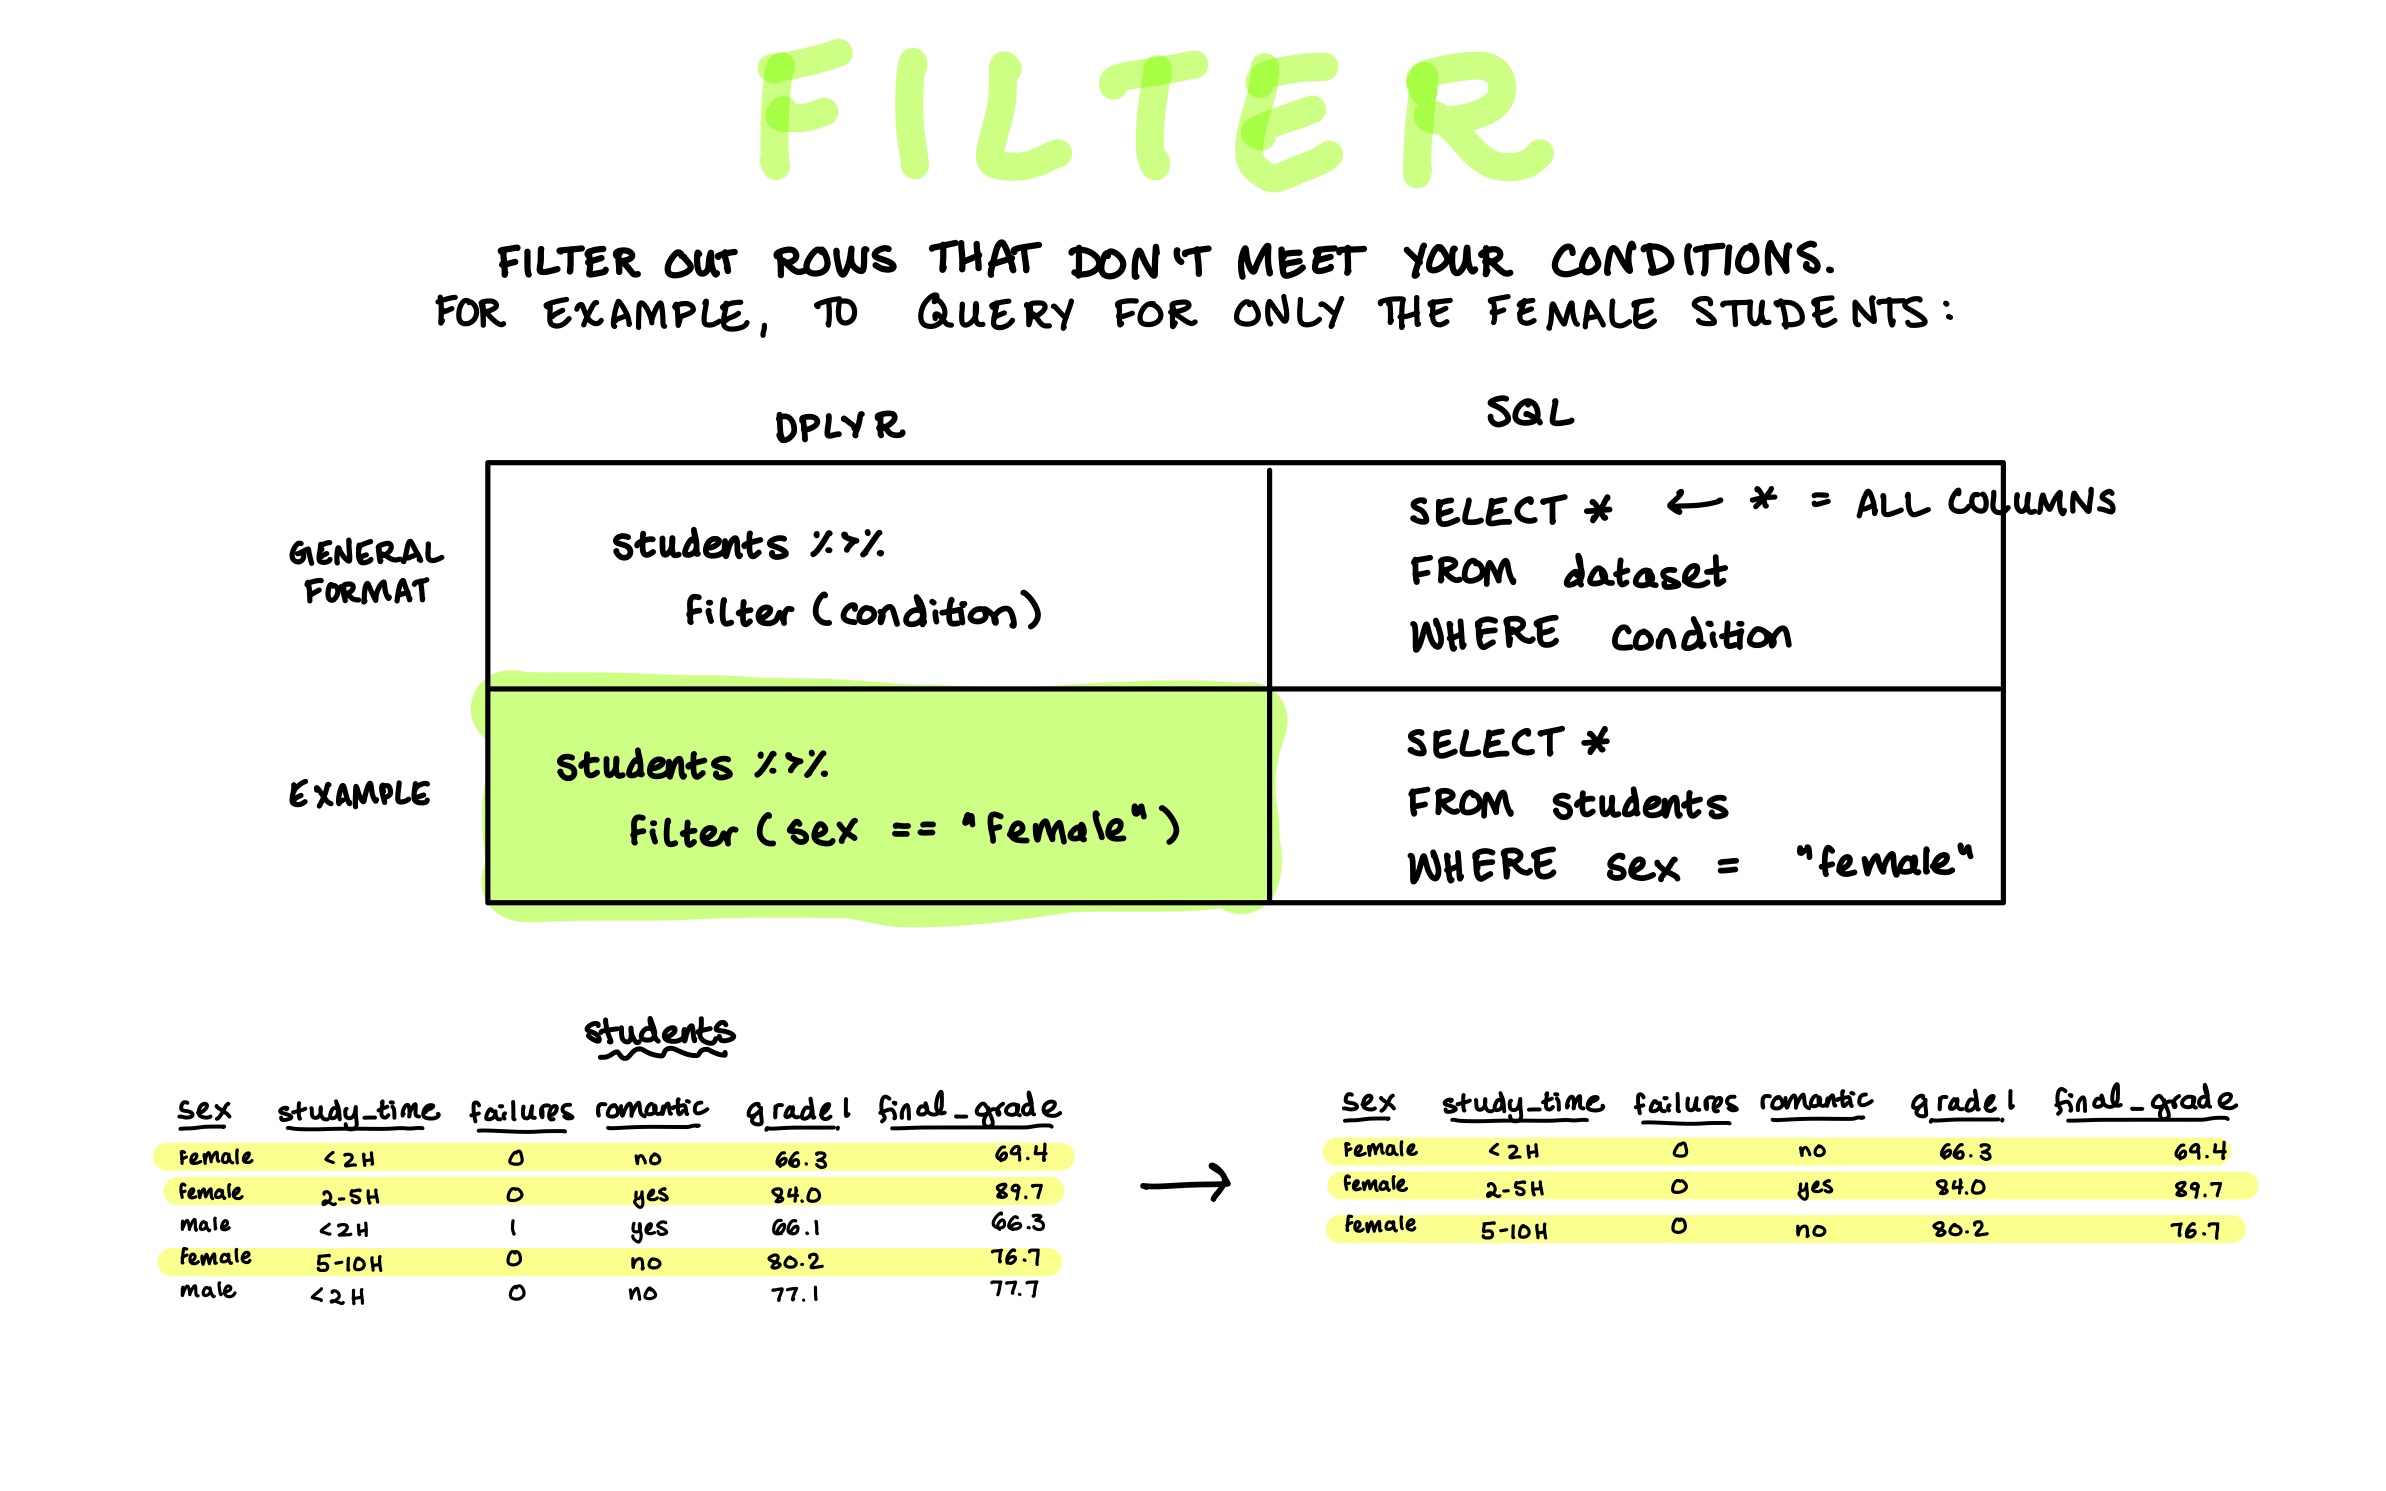 FILTER
FILTER OUT ROWS THAT DON'T MEET YOUR CONDITIONS.
FOR EXAMPLE, TO QUERY FOR ONLY THE FEMALE STUDENTS:
DPLYR SQL
GENERAL FORMAT
students %>%
filter (condition)
SELECT * ← * = ALL COLUMNS
FROM dataset
WHERE condition
EXAMPLE
students %>%
filter (sex == "female")
SELECT *
FROM students
WHERE sex = "female"
students
sex study_time failures romantic grade1 final_grade
female <2H 0 no 66.3 69.4
female 2-5H 0 yes 84.0 89.7
male <2H 1 yes 66.1 66.3
female 5-10H 0 no 80.2 76.7
male <2H 0 no 77.1 77.7
→
sex study_time failures romantic grade1 final_grade
female <2H 0 no 66.3 69.4
female 2-5H 0 yes 84.0 89.7
female 5-10H 0 no 80.2 76.7